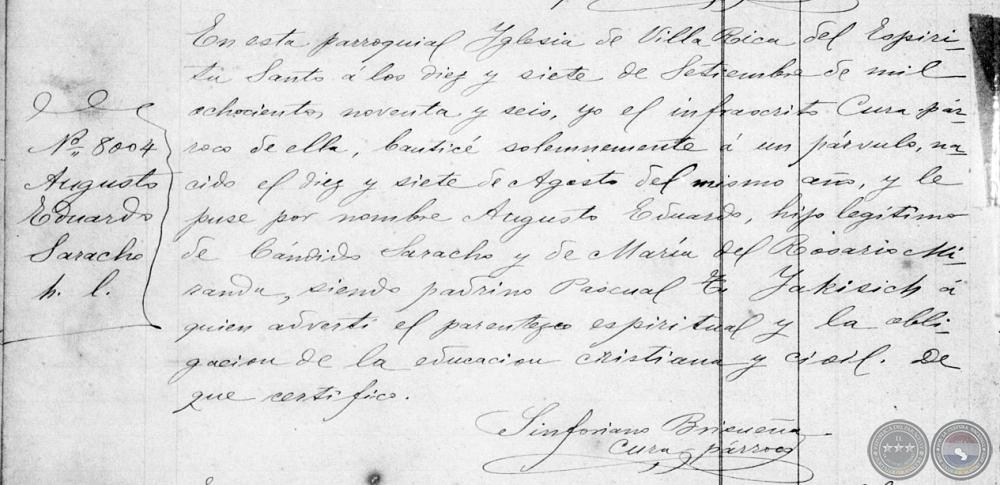 En esta parroquial Yglesia de Villa Rica del Espiri-
tu Santo á los diez y siete de Setiembre de mil
ochocientos noventa y seis, yo el infrascrito Cura pár-
roco de ella, bauticé solemnemente á un párvulo, na-
cido el diez y siete de Agosto del mismo año, y le
puse por nombre Augusto Eduardo, hijo legítimo
de Cándido Saracho y de María del Rosario Mi-
randa, siendo padrino Pascual Yakisich á
quien advertí el parentezco espiritual y la obli-
gacion de la educacion cristiana y civil. De
que certifico.
Sinforiano Brisueña
Cura párroco
Nº 8004
Augusto
Eduardo
Saracho
h. l.